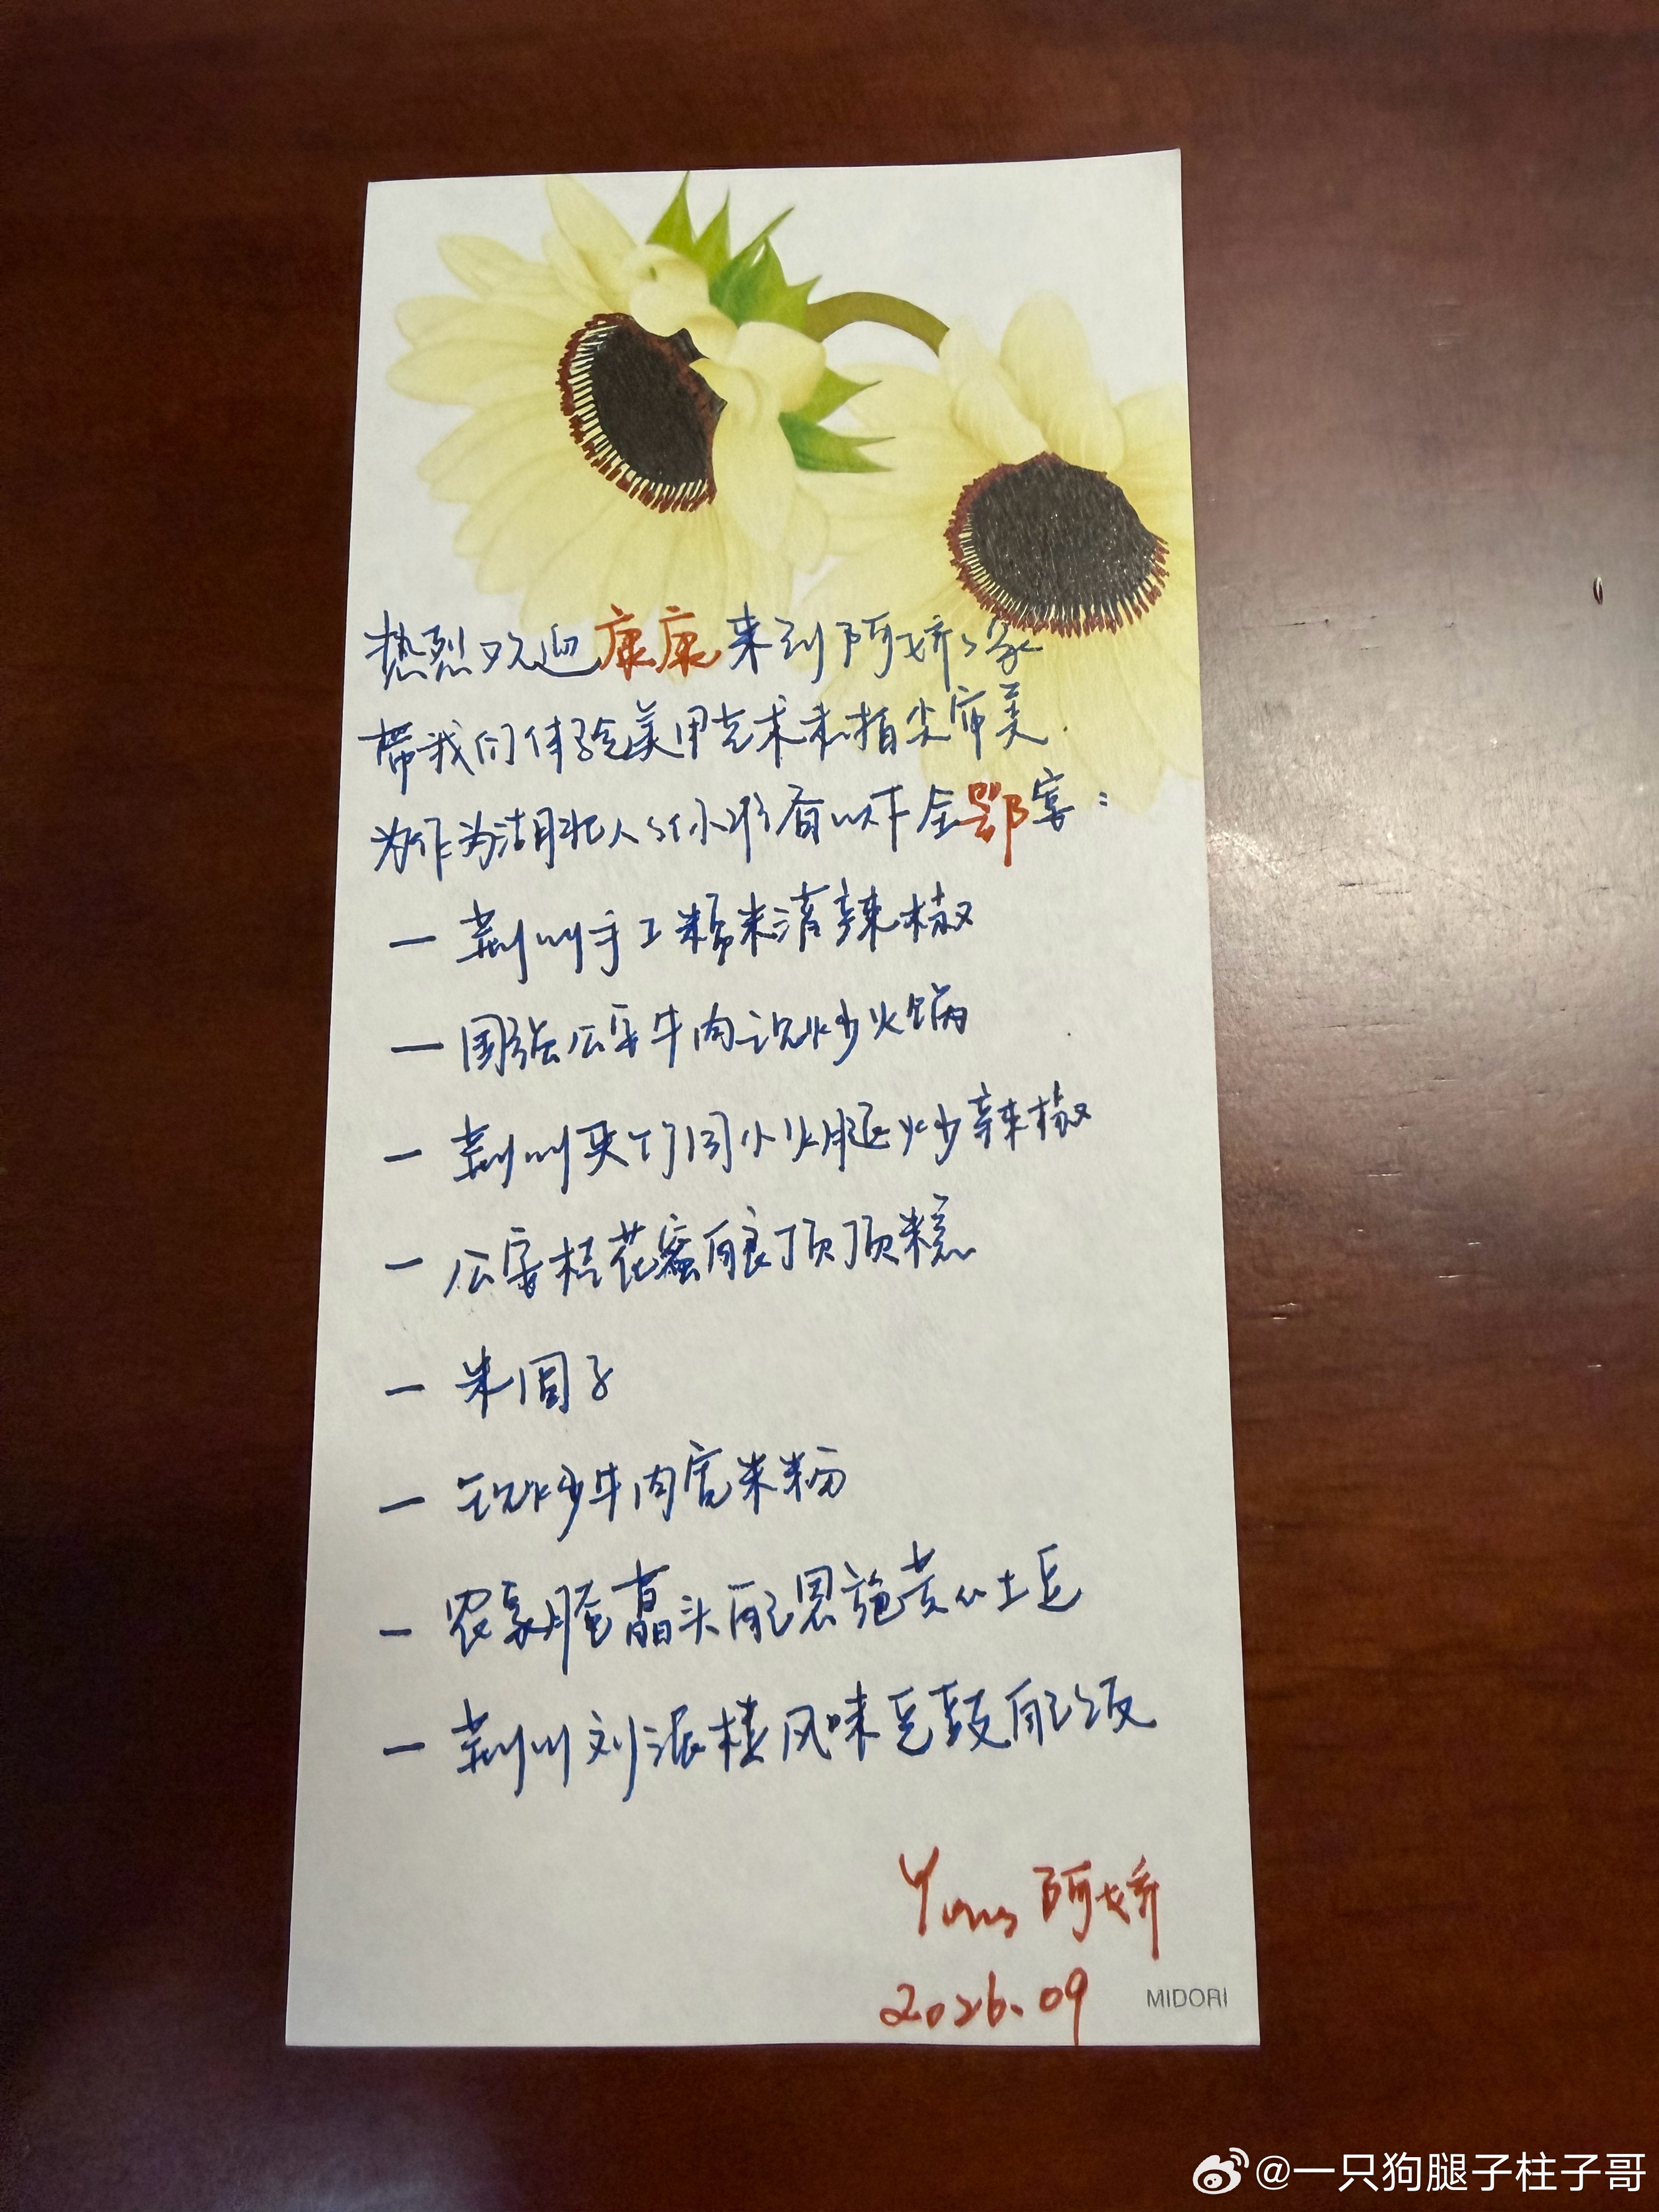 热烈欢迎康康来到阿娇家
带我们体验美甲艺术和指尖审美.
为作为湖北人的你准备以下全鄂宴:
一 荆州手工粉米渣辣椒
一 国强公安牛肉现炒火锅
一 荆州小火腿炒辣椒
一 公安桂花蜜酿顶顶糕
一 米团子
一 现炒牛肉宽米粉
一 农家腌藠头配恩施黄心土豆
一 荆州刘派桂风味豆豉配饭
阿娇
2026.09
MIDORI
@一只狗腿子柱子哥